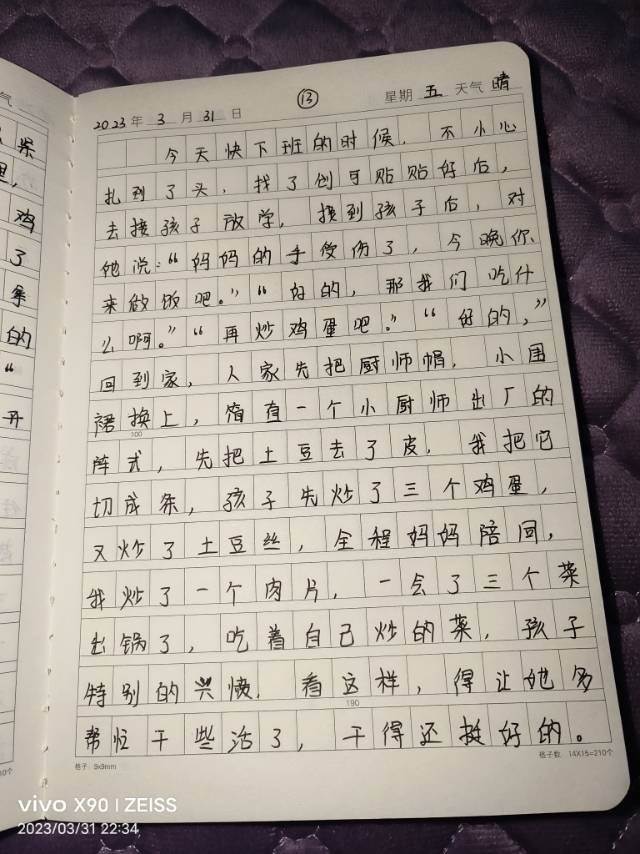 气
2023年 3 月 31 日 ⑬ 星期 五 天气 晴
今天快下班的时候，不小心
扎到了头，找了创可贴贴好后，
去接孩子放学，接到孩子后，对
她说:“妈妈的手受伤了，今晚你
来做饭吧。”“好的，那我们吃什
么啊。”“再炒鸡蛋吧。”“好的，”
回到家，人家先把厨师帽，小围
裙换上，猶有一个小厨师出厂的
阵式，先把土豆去了皮，我把它
切成条，孩子先炒了三个鸡蛋，
又炒了土豆丝，全程妈妈陪同，
我炒了一个肉片，一会了三个菜
出锅了，吃着自己炒的菜，孩子
特别的兴懊，看这样，得让她多
帮忙干些活了，干得还挺好的。
100
190
格子：9x9mm
格子数：14X15=210个
鸡
了
拿
的
“
开
10个
vivo X90 | ZEISS
2023/03/31 22:34